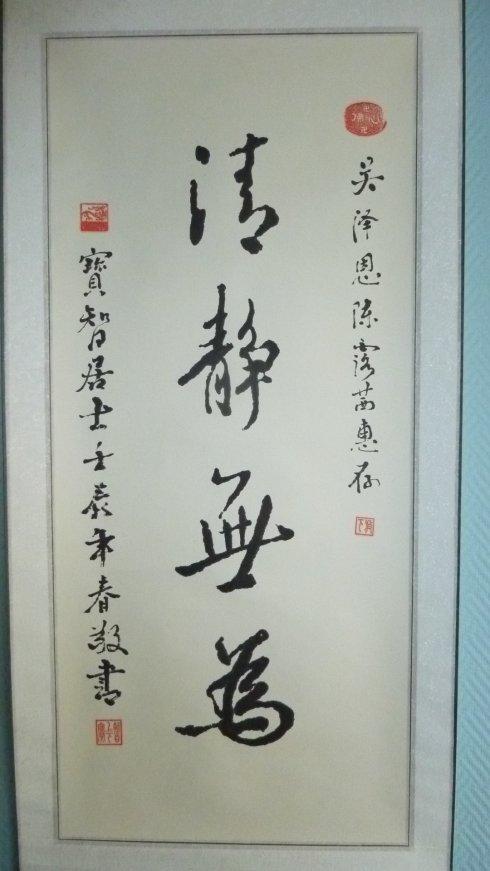 吴泽恩陈露茜惠存
清静無為
寳智居士壬辰年春敬書